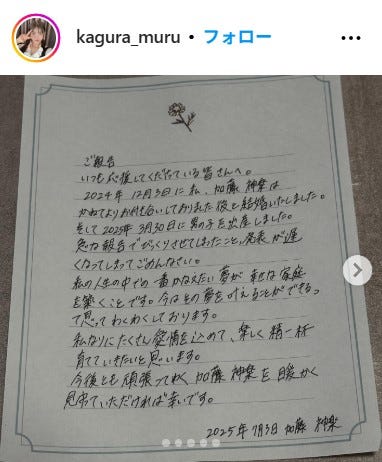 kagura_muru • フォロー
ご報告
いつも応援してくださっている皆さんへ。
2024年 12月3日に私、加藤 神楽は
かねてよりお付き合いしておりました彼と結婚いたしました。
そして2025年 3月30日に男の子を出産しました。
急な報告でびっくりさせてしまったこと、発表が遅
くなってしまってごめんなさい。
私の人生の中での一番かなえたい夢が 幸せな家庭
を築くことです。今はその夢を叶えることができるっ
て思ってわくわくしております。
私なりにたくさん愛情を込めて、楽しく精一杯
育てていきたいと思います。
今後とも頑張ってゆく 加藤 神楽を 暖かく
見守っていただければ幸いです。
2025年 7月3日 加藤 神楽